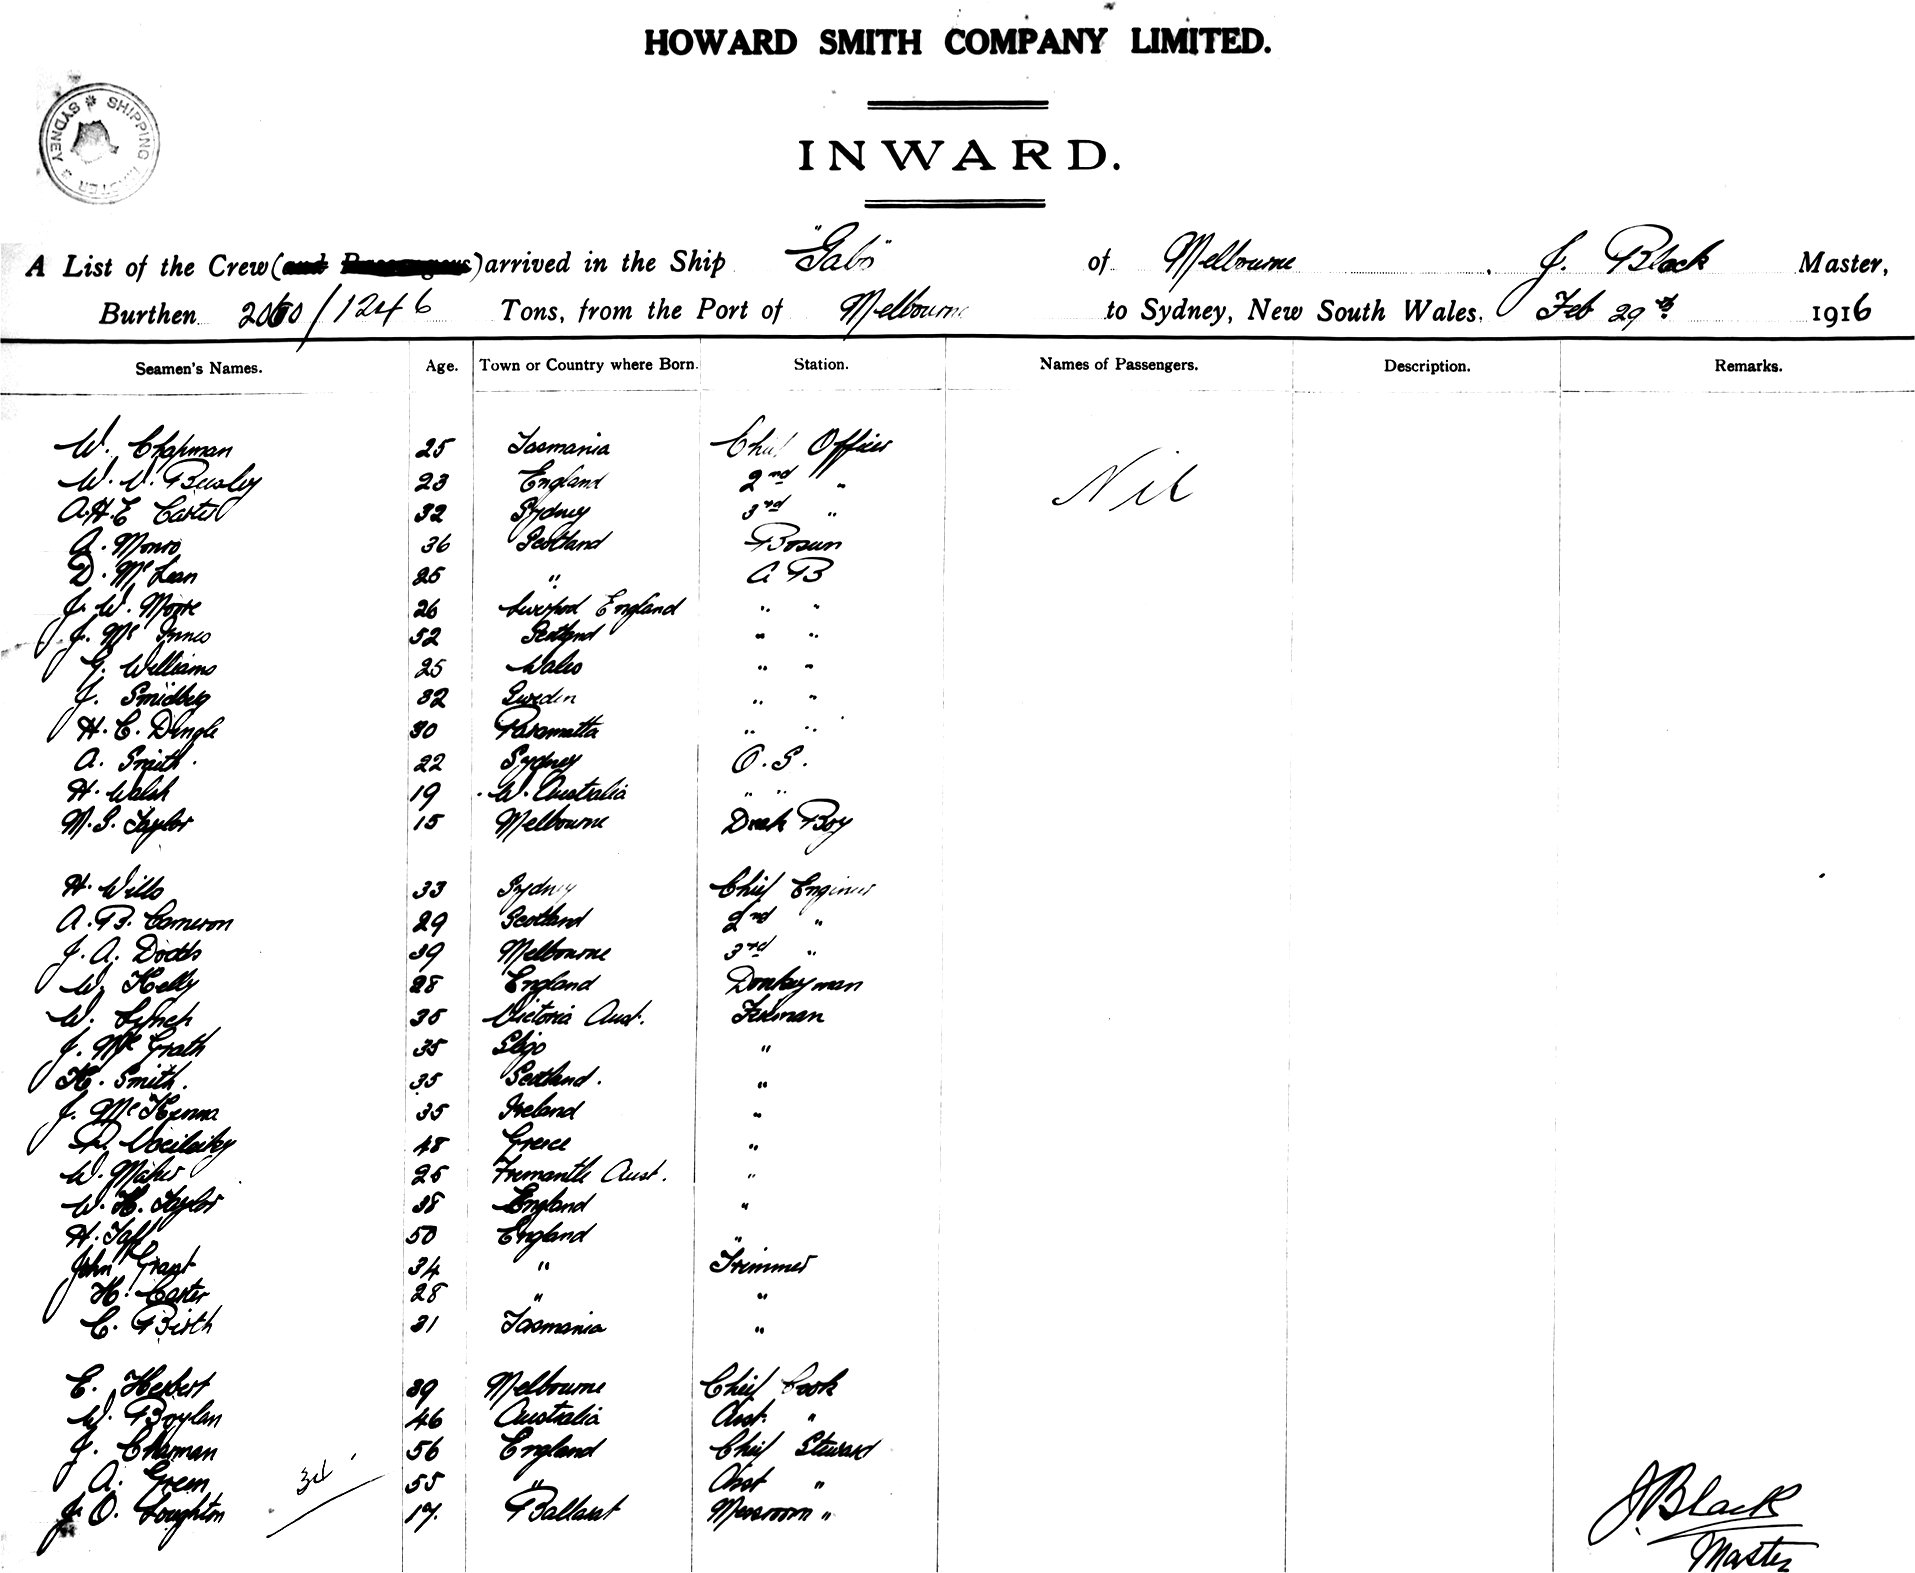 HOWARD SMITH COMPANY LIMITED.
SHIPPING MASTER'S SYDNEY
INWARD.
A List of the Crew (and Passengers) arrived in the Ship "Gabo" of Melbourne, J. Black Master,
Burthen 2060/1246 Tons, from the Port of Melbourne to Sydney, New South Wales, Feb 29th 1916
Seamen's Names. Age. Town or Country where Born. Station. Names of Passengers. Description. Remarks.
W. Chapman 25 Tasmania Chief Officer
W. V. 23 England 2nd " Nil
A.H.E Carter 32 Sydney 3rd "
A. Monro 36 Scotland Bosun
D. McLean 25 " A B
J. W. Moore 26 Liverpool England " "
J. McInnes 52 Scotland " "
G. Williams 25 Wales " "
J. Smidberg 32 Sweden " "
H. C. Dingle 30 Paramatta " "
A. Smith. 22 Sydney O. S.
H. Walsh 19 W. Australia " "
M. S. Taylor 15 Melbourne Deck Boy
H. Wills 33 Sydney Chief Engineer
A. B. Cameron 29 Scotland 2nd "
J. A. Dodds 39 Melbourne 3rd "
W. Kelly 28 England Donkeyman
W. Lynch 35 Victoria Aust. Fireman
J. McGrath 35 Sligo "
H. Smith. 35 Scotland. "
J. McKenna 35 Ireland "
48 Greece "
W. Maher 25 Fremantle Aust. "
W. H. Taylor 38 England "
H. Taff 50 England "
John Grant 34 " Trimmer
H. Carter 28 " "
C. Birth 31 Tasmania "
E. Herbert 39 Melbourne Chief Cook
W. Boylan 46 Australia Asst. "
J. Chapman 56 England Chief Steward
A. Green 55 " Asst "
34
J. O. Loughton 17. Ballarat Messroom "
J Black
Master